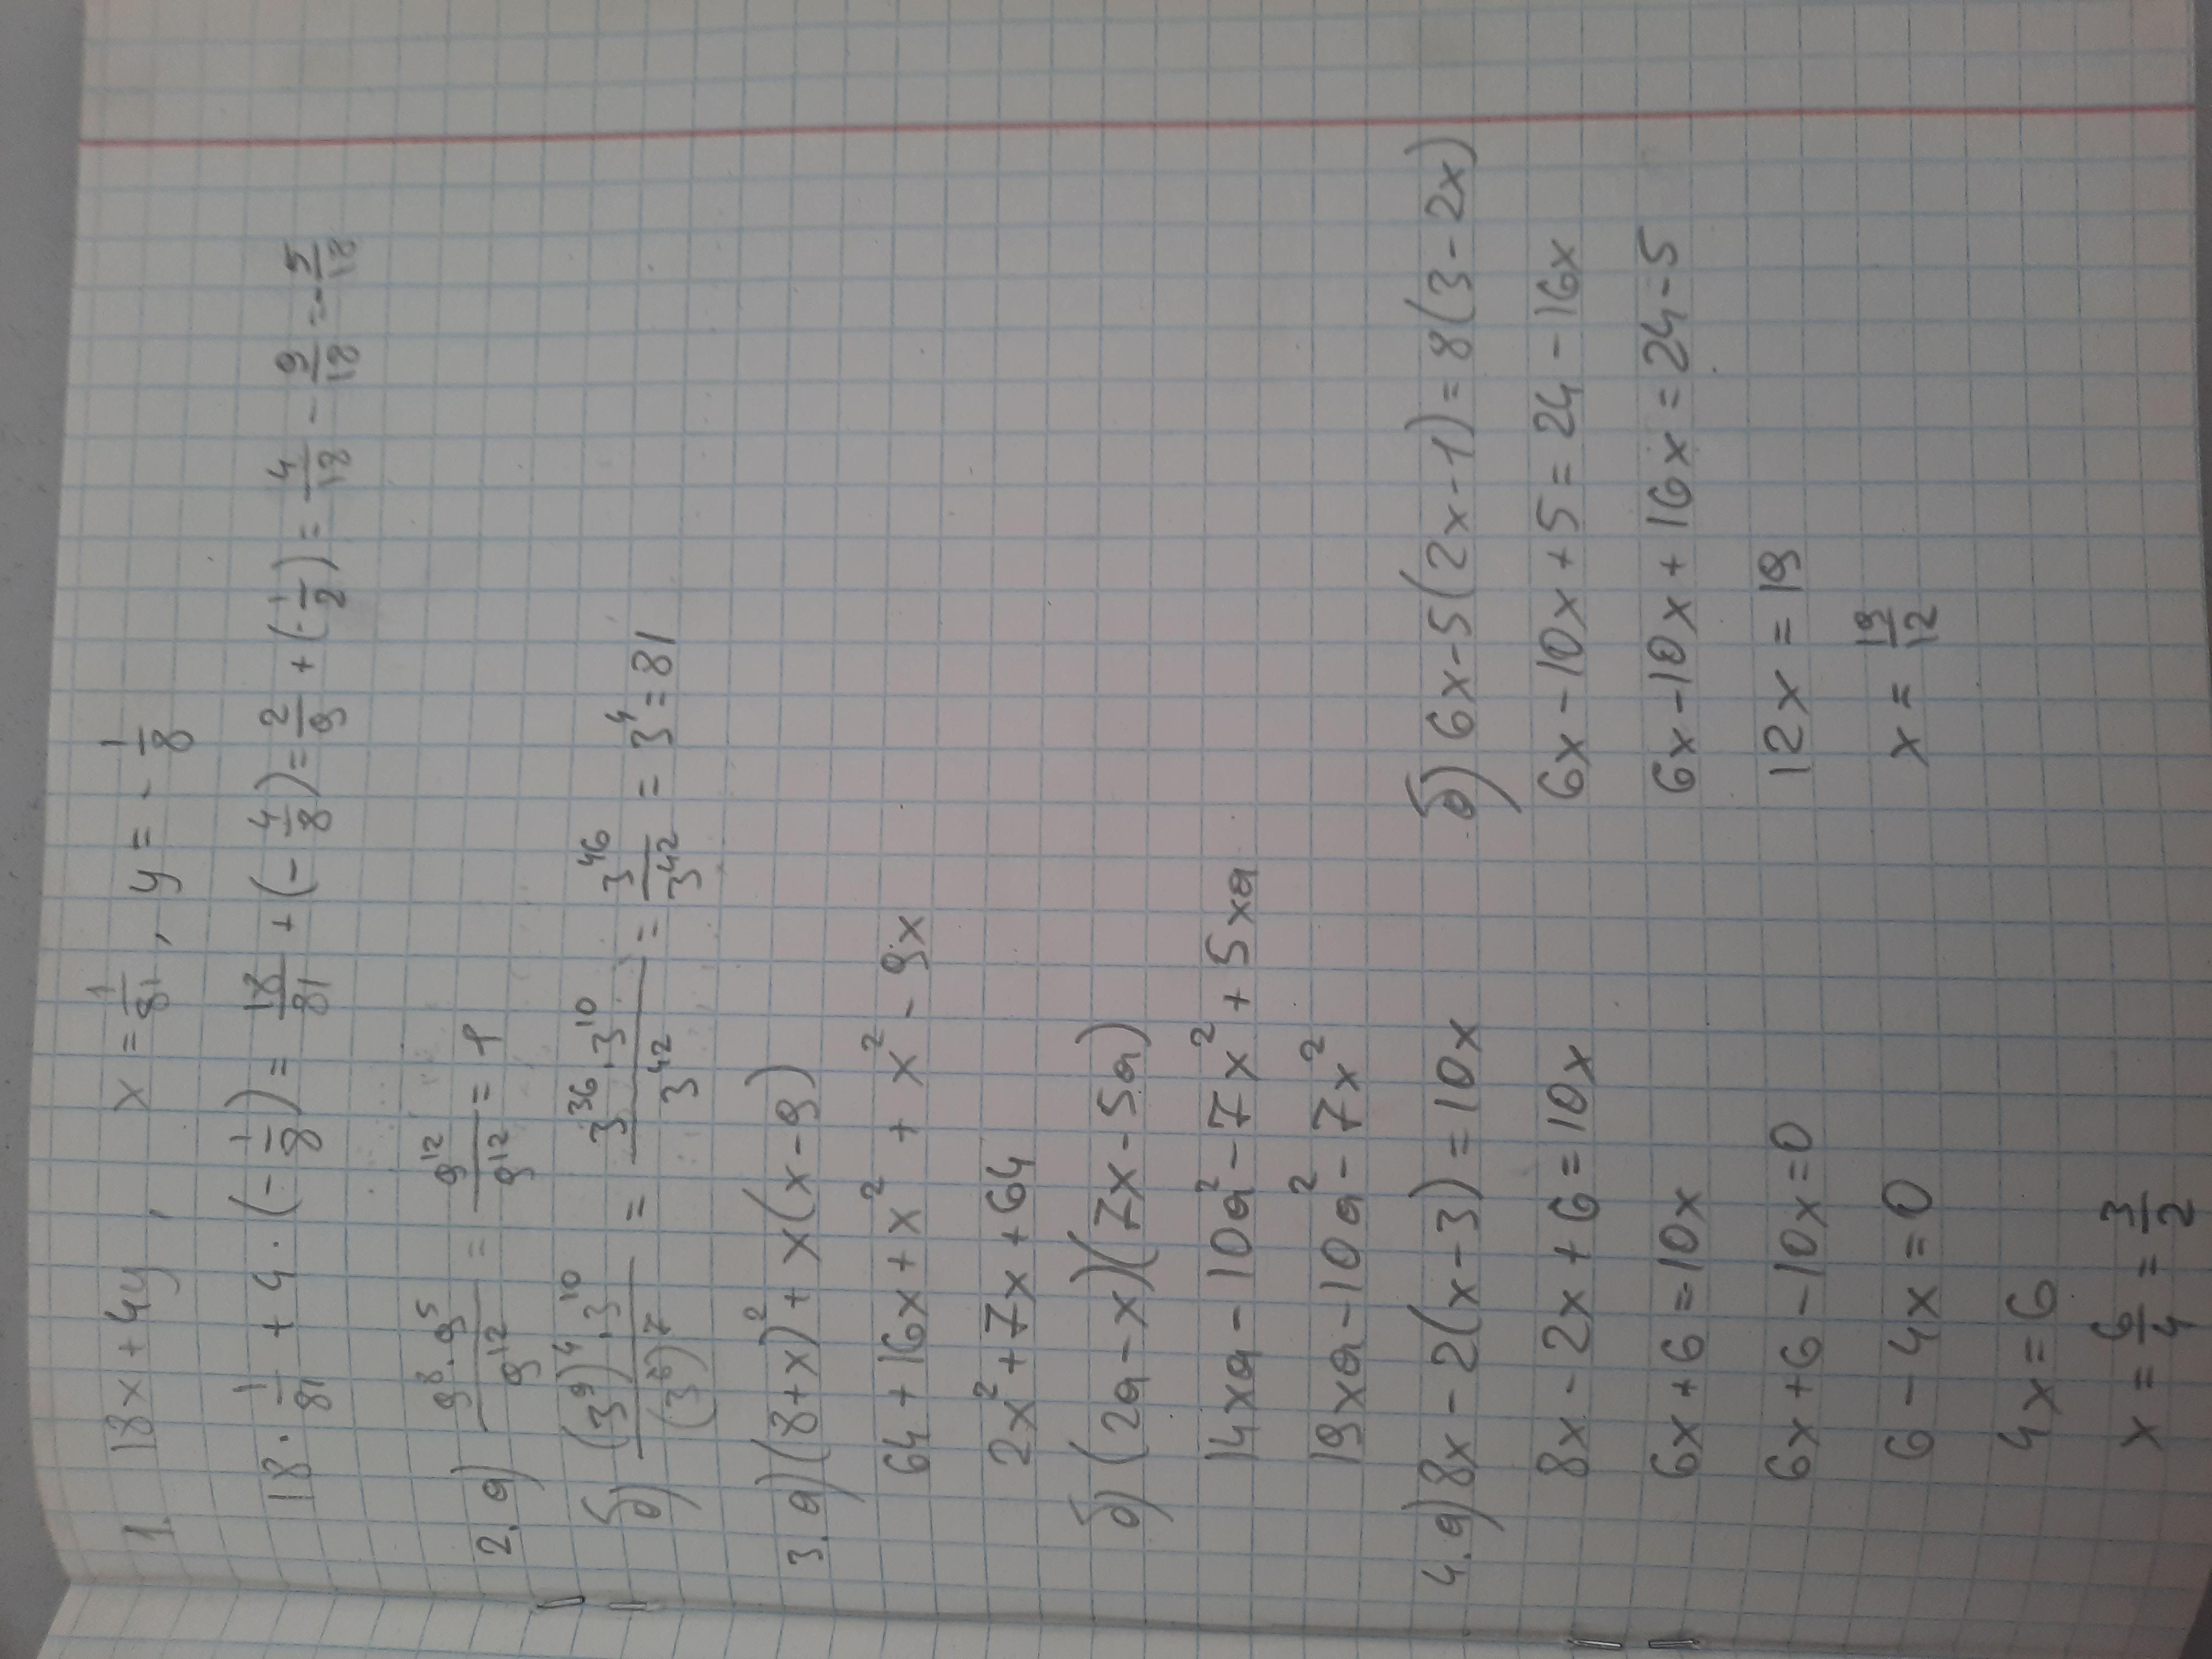 1. 18x + 4y, x = 1/81, y = - 1/8
18 · 1/81 + 4 · (- 1/8) = 18/81 + (- 4/8) = 2/9 + (- 1/2) = 4/18 - 9/18 = - 5/18
2. a) 9⁸ · 9⁵ / 9¹² = 9¹² / 9¹² = 1
б) (3⁹)⁴ · 3¹⁰ / (3⁶)⁷ = 3³⁶ · 3¹⁰ / 3⁴² = 3⁴⁶ / 3⁴² = 3⁴ = 81
3. a) (8 + x)² + x(x - 9)
64 + 16x + x² + x² - 9x
2x² + 7x + 64
б) (2a - x)(7x - 5a)
14xa - 10a² - 7x² + 5xa
19xa - 10a² - 7x²
4. a) 8x - 2(x - 3) = 10x
8x - 2x + 6 = 10x
6x + 6 = 10x
6x + 6 - 10x = 0
6 - 4x = 0
4x = 6
x = 6/4 = 3/2
б) 6x - 5(2x - 1) = 8(3 - 2x)
6x - 10x + 5 = 24 - 16x
6x - 10x + 16x = 24 - 5
12x = 19
x = 19/12